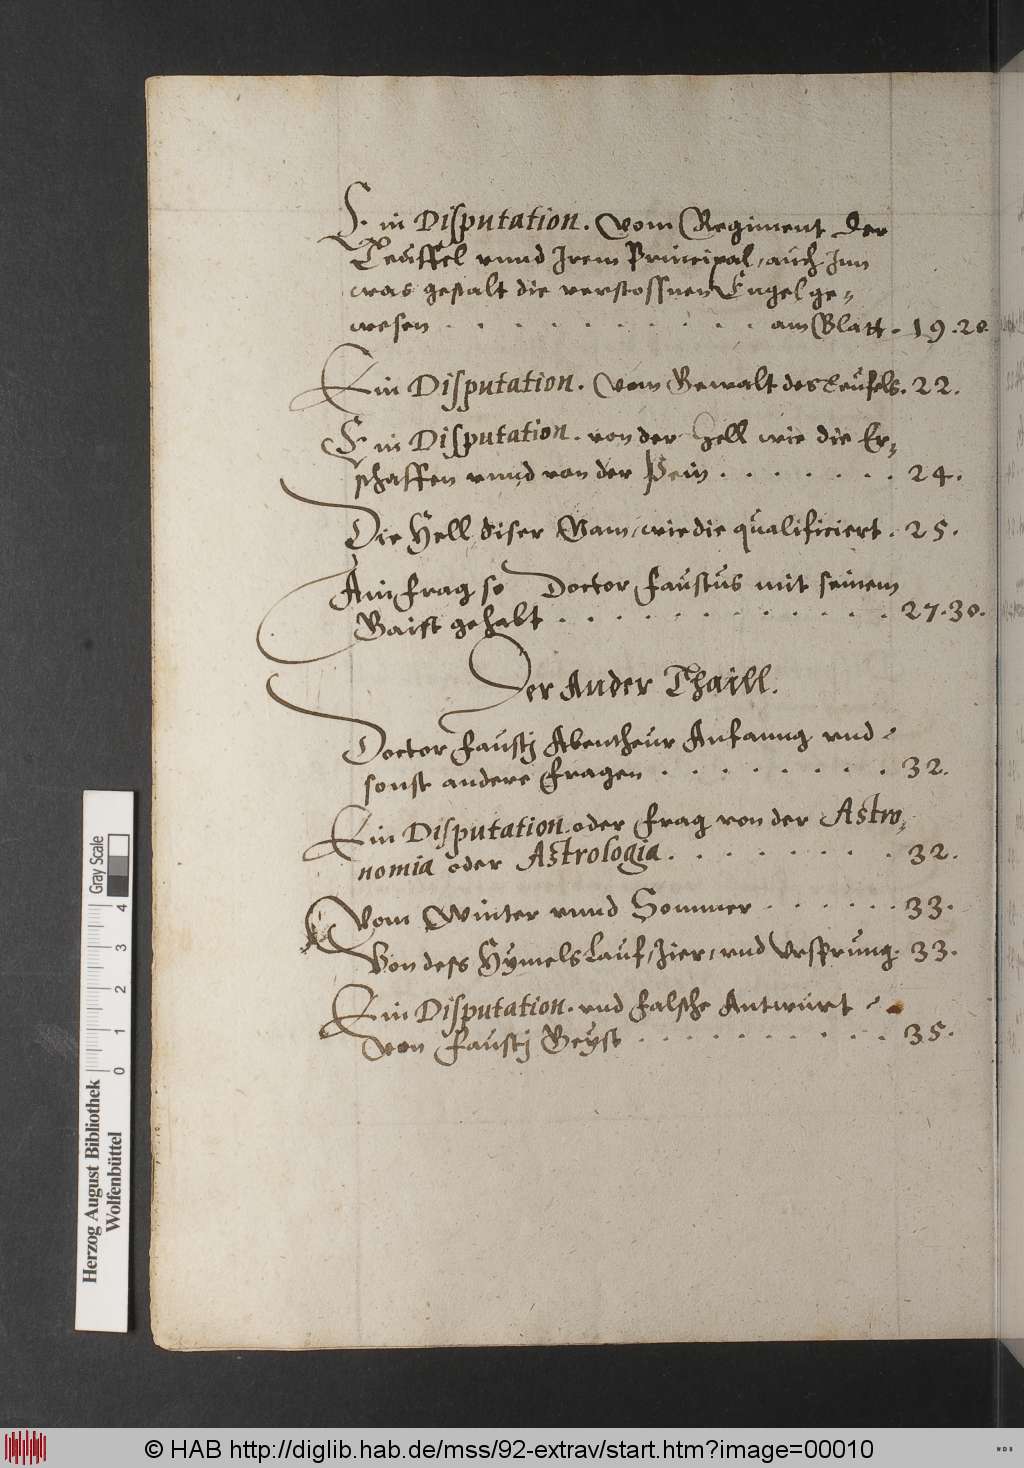 Ein Disputation. Vom Regiment der
Teuffel vnnd Irem Principal, auch Inn
was gestalt die verstossnen Engel ge-
wesen . . . . . . . . . . . am Blatt. 19.20.
Ein Disputation. Vom Gewalt des Teufels. 22.
Ein Disputation. von der Hell wie die Er-
schaffen vnnd von der Pein . . . . . . . 24.
Die Hell diser Nam, wie die qualificiert. 25.
Ain frag so Doctor Faustus mit seinem
Gaist gehabt . . . . . . . . . . . . 27.30.
Der Ander Thaill.
Doctor Faustj Abentheur Anfanng vnd
sonst andere Fragen . . . . . . . . 32.
Ein Disputation. oder Frag von der Astro-
nomia oder Astrologia . . . . . . . . 32.
Vom Winter vnnd Sommer . . . . . . 33.
Von dess Hymels Lauf, Zier, vnd Vrsprung. 33.
Ein Disputation. vnd falsche Antwurt
von Faustj Geyst . . . . . . . . . . 35.
Herzog August Bibliothek
Wolfenbüttel
0 1 2 3 4
Gray Scale
© HAB http://diglib.hab.de/mss/92-extrav/start.htm?image=00010